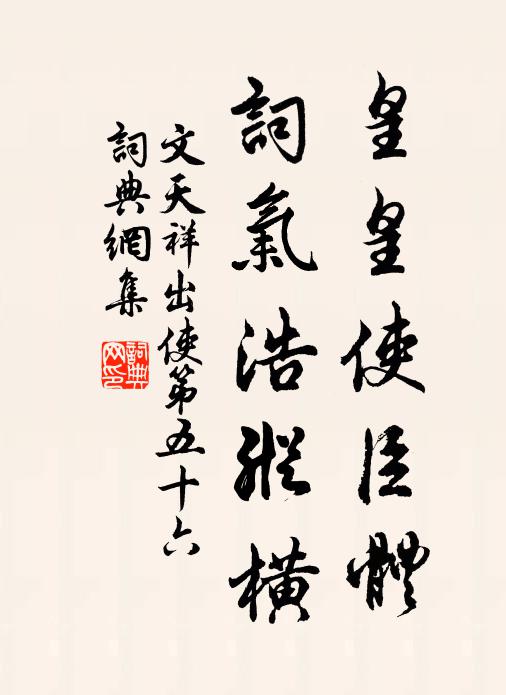 皇皇使臣體
詞氣浩縱橫
文天祥出使第五十六
詞典網集
詞典
网印